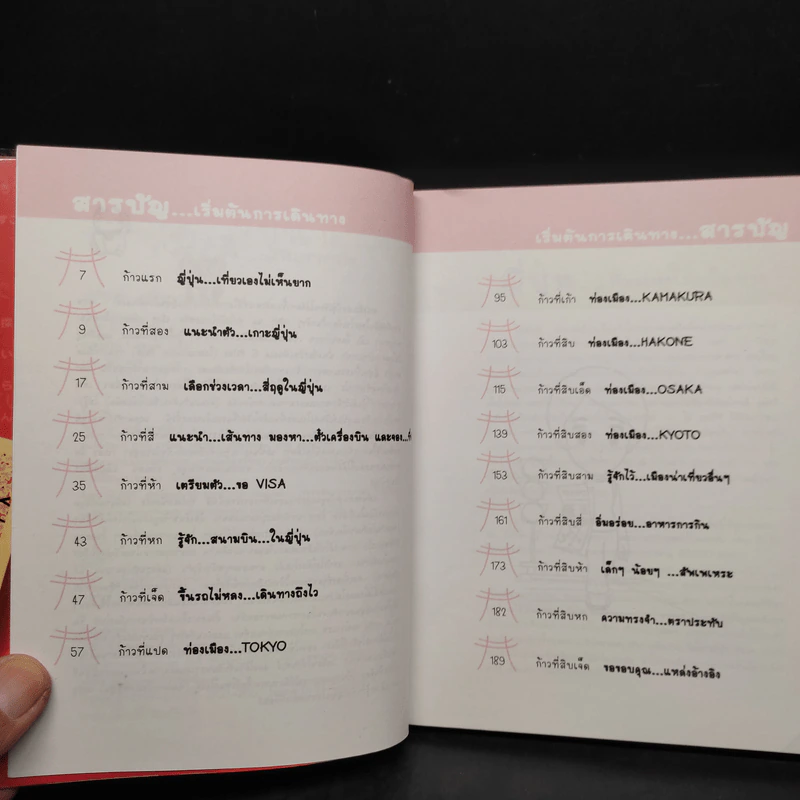 สารบัญ...เริ่มต้นการเดินทาง
7 ก้าวแรก ญี่ปุ่น...เที่ยวเองไม่เห็นยาก
9 ก้าวที่สอง แนะนำตัว...เกาะญี่ปุ่น
17 ก้าวที่สาม เลือกช่วงเวลา...สี่ฤดูในญี่ปุ่น
25 ก้าวที่สี่ แนะนำ...เส้นทาง มองหา...ตั๋วเครื่องบิน และจอง...
35 ก้าวที่ห้า เตรียมตัว...ขอ VISA
43 ก้าวที่หก รู้จัก...สนามบิน...ในญี่ปุ่น
47 ก้าวที่เจ็ด ขึ้นรถไม่หลง...เดินทางถึงไว
57 ก้าวที่แปด ท่องเมือง...TOKYO
เริ่มต้นการเดินทาง...สารบัญ
95 ก้าวที่เก้า ท่องเมือง...KAMAKURA
103 ก้าวที่สิบ ท่องเมือง...HAKONE
115 ก้าวที่สิบเอ็ด ท่องเมือง...OSAKA
139 ก้าวที่สิบสอง ท่องเมือง...KYOTO
153 ก้าวที่สิบสาม รู้จักไว้...เมืองน่าเที่ยวอื่นๆ
161 ก้าวที่สิบสี่ อิ่มอร่อย...อาหารการกิน
173 ก้าวที่สิบห้า เล็กๆ น้อยๆ ...สัพเพเหระ
182 ก้าวที่สิบหก ความทรงจำ...ตราประทับ
189 ก้าวที่สิบเจ็ด ขอขอบคุณ...แหล่งอ้างอิง